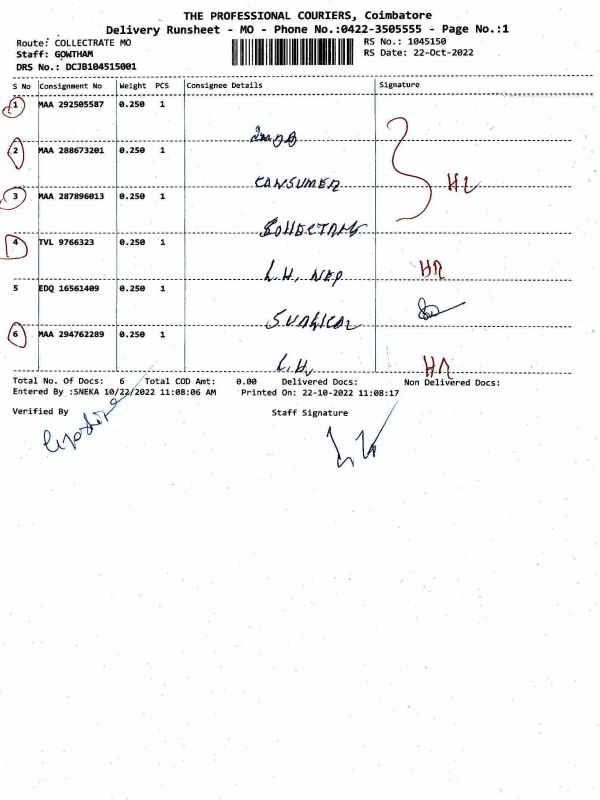 THE PROFESSIONAL COURIERS, Coimbatore
Delivery Runsheet - MO - Phone No.:0422-3505555 - Page No.:1
Route: COLLECTRATE MO
RS No.: 1045150
Staff: GOWTHAM
RS Date: 22-Oct-2022
DRS No.: DCJB104515001
S No Consignment No Weight PCS Consignee Details Signature
1 MAA 292505587 0.250 1
2 MAA 288673201 0.250 1
CANSUMER
3 MAA 287896013 0.250 1
4 TVL 9766323 0.250 1
L.H,
5 EDQ 16561409 0.250 1
SURGICAL
6 MAA 294762289 0.250 1
L.H,
Total No. Of Docs: 6 Total COD Amt: 0.00 Delivered Docs: Non Delivered Docs:
Entered By :SNEKA 10/22/2022 11:08:06 AM Printed On: 22-10-2022 11:08:17
Verified By Staff Signature